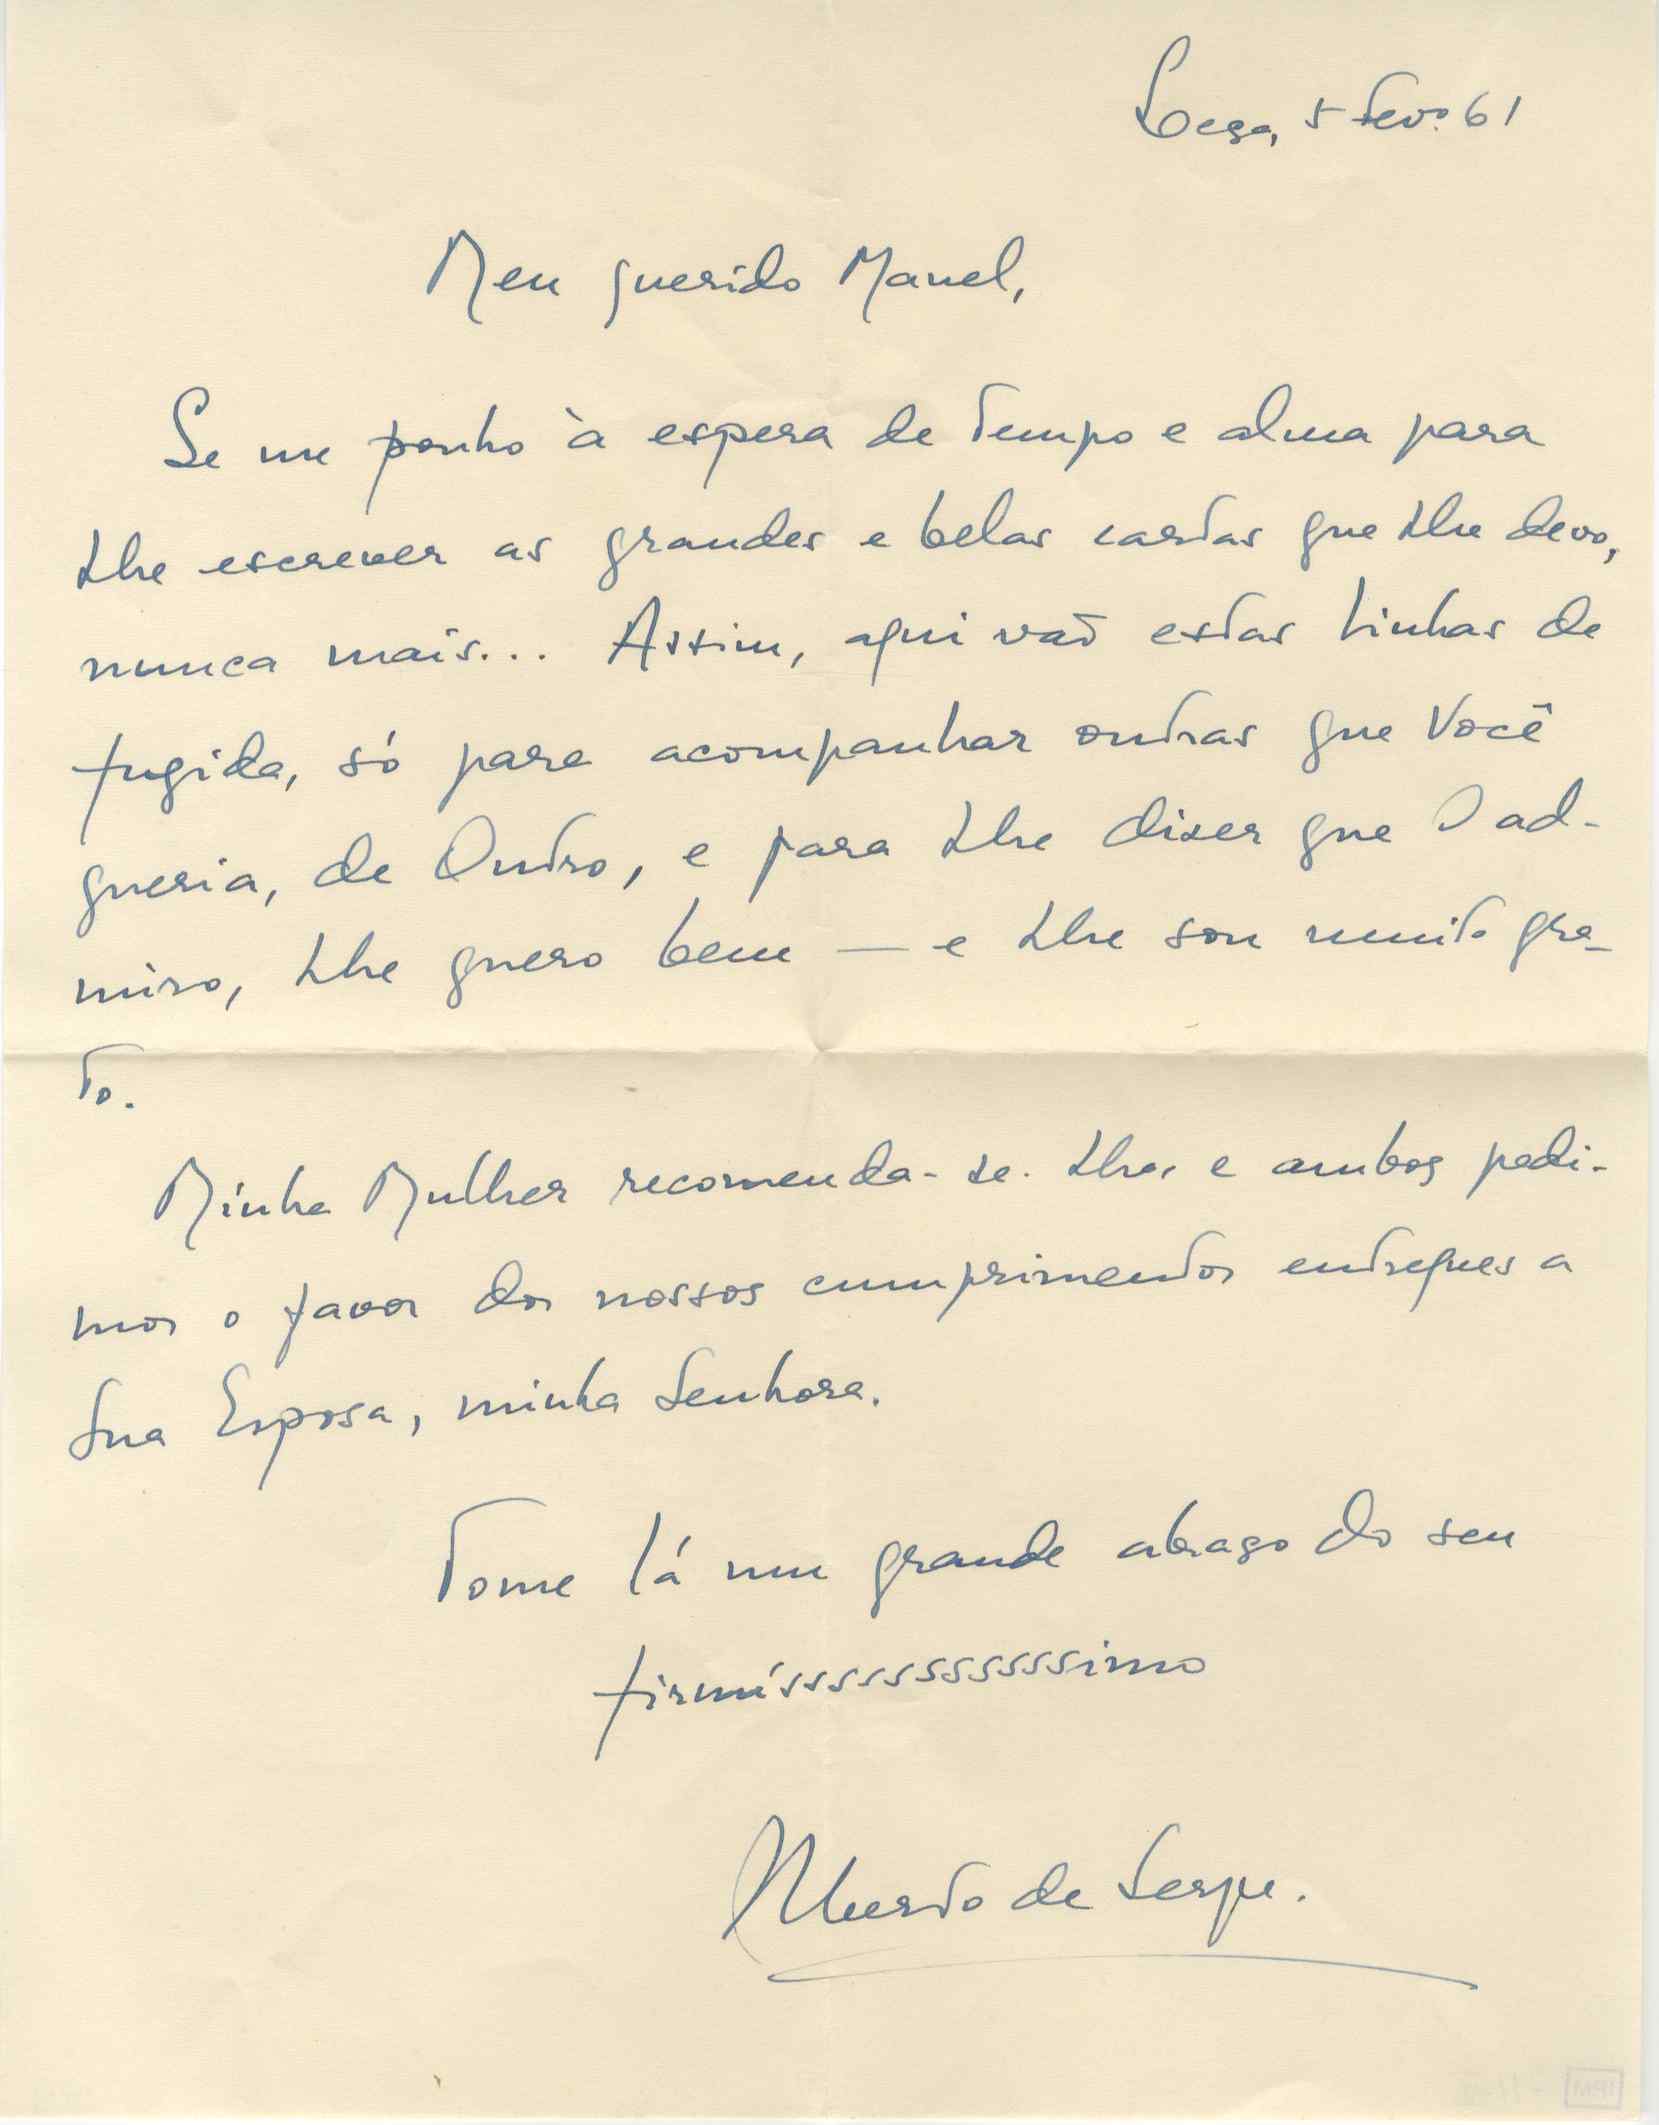 Leça, 5 Fevº 61
Meu querido Manel,
Se me ponho à espera de tempo e alma para
Lhe escrever as grandes e belas cartas que Lhe devo,
nunca mais... Assim, aqui vão estas linhas de
fugida, só para acompanhar outras que Você
queria, de Outro, e para Lhe dizer que O ad-
miro, Lhe quero bem — e Lhe sou muito gra-
to.
Minha Mulher recomenda-se-Lhe, e ambos pedi-
mos o favor dos nossos cumprimentos entregues a
Sua Esposa, minha Senhora.
Tome lá um grande abraço do seu
firmíssssssssssssimo
Alberto de Serpa.